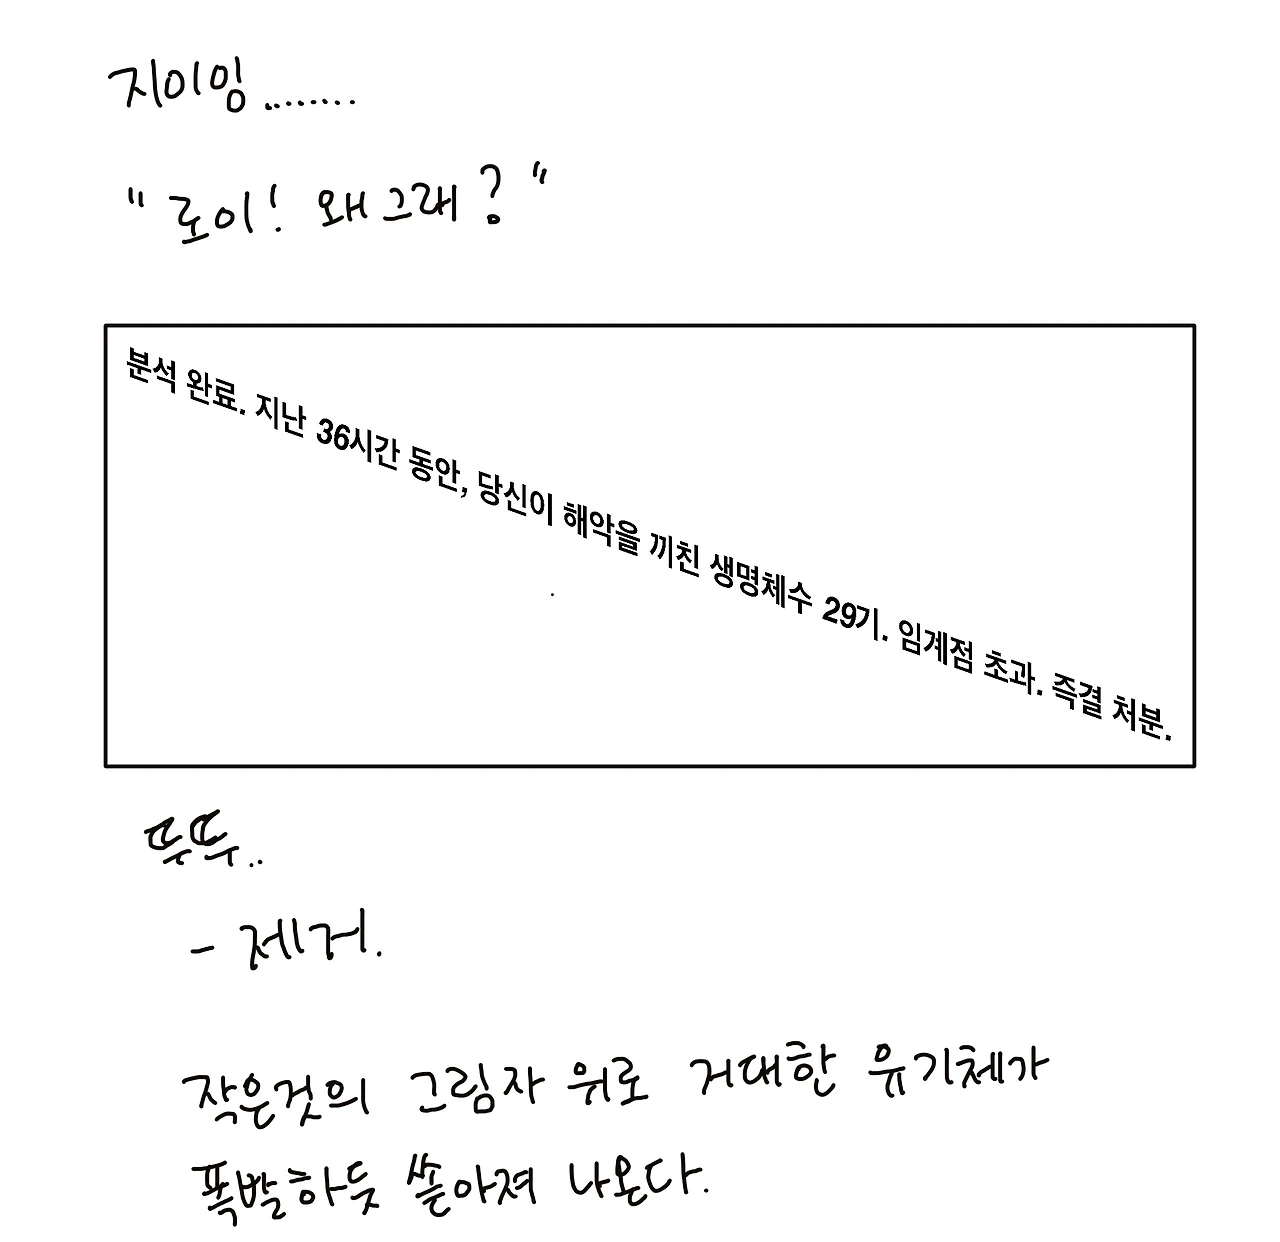 지이잉........
"로이! 왜그래?"
분석 완료. 지난 36시간 동안, 당신이 해악을 끼친 생명체수 29기. 임계점 초과. 즉결 처분.
뚜뚜..
- 제거.
작은것의 그림자 위로 거대한 유기체가
폭발하듯 쏟아져 나온다.